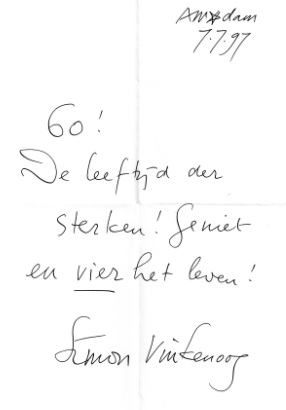 Amsdam
7.7.97
60!
De leeftijd der
sterken! Geniet
en vier het leven!
Simon Vinkenoog